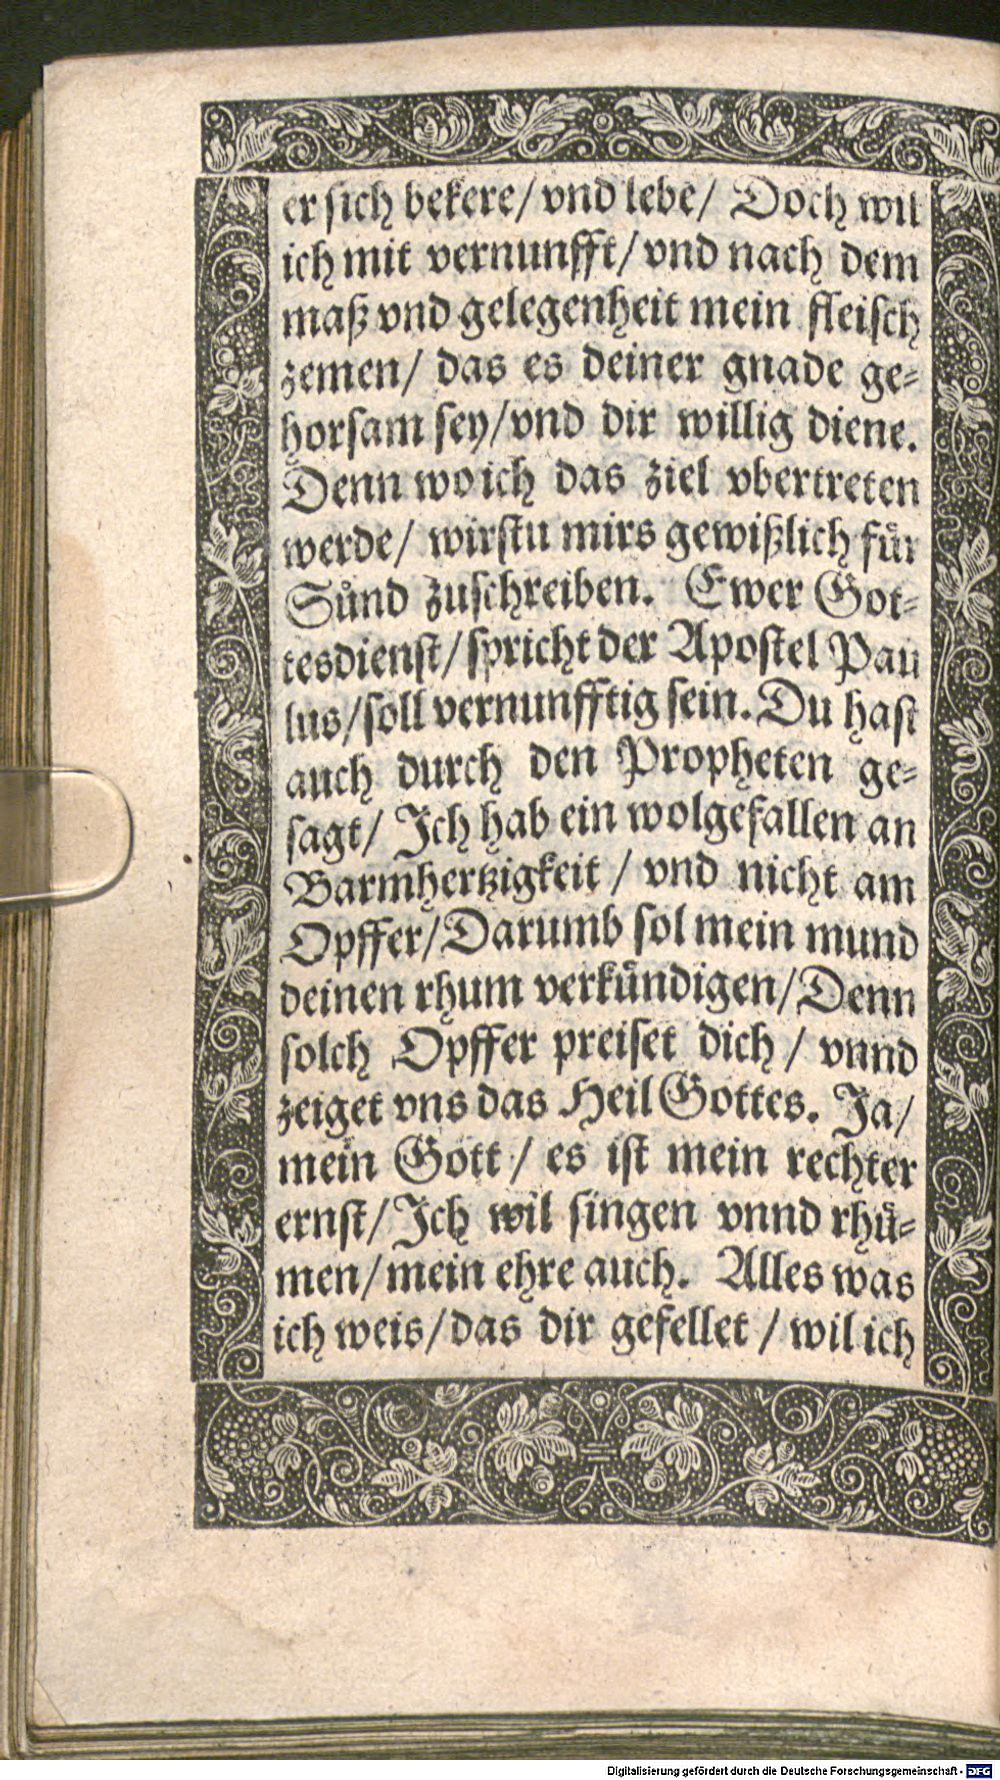 er sich bekere/ vnd lebe/ Doch wil
ich mit vernunfft/ vnd nach dem
maß vnd gelegenheit mein fleisch
zemen/ das es deiner gnade ge-
horsam sey/ vnd dir willig diene.
Denn wo ich das ziel vbertreten
werde/ wirstu mirs gewißlich fuͤr
Suͤnd zuschreiben. Ewer Got-
tesdienst/ spricht der Apostel Pau
lus/ soll vernunfftig sein. Du hast
auch durch den Propheten ge-
sagt/ Ich hab ein wolgefallen an
Barmhertzigkeit / vnd nicht am
Opffer/ Darumb sol mein mund
deinen rhum verkuͤndigen/ Denn
solch Opffer preiset dich / vnnd
zeiget vns das Heil Gottes. Ja/
mein Gott / es ist mein rechter
ernst/ Ich wil singen vnnd rhuͤ-
men/ mein ehre auch. Alles was
ich weis/ das dir gefellet / wil ich
Digitalisierung gefördert durch die Deutsche Forschungsgemeinschaft - DFG